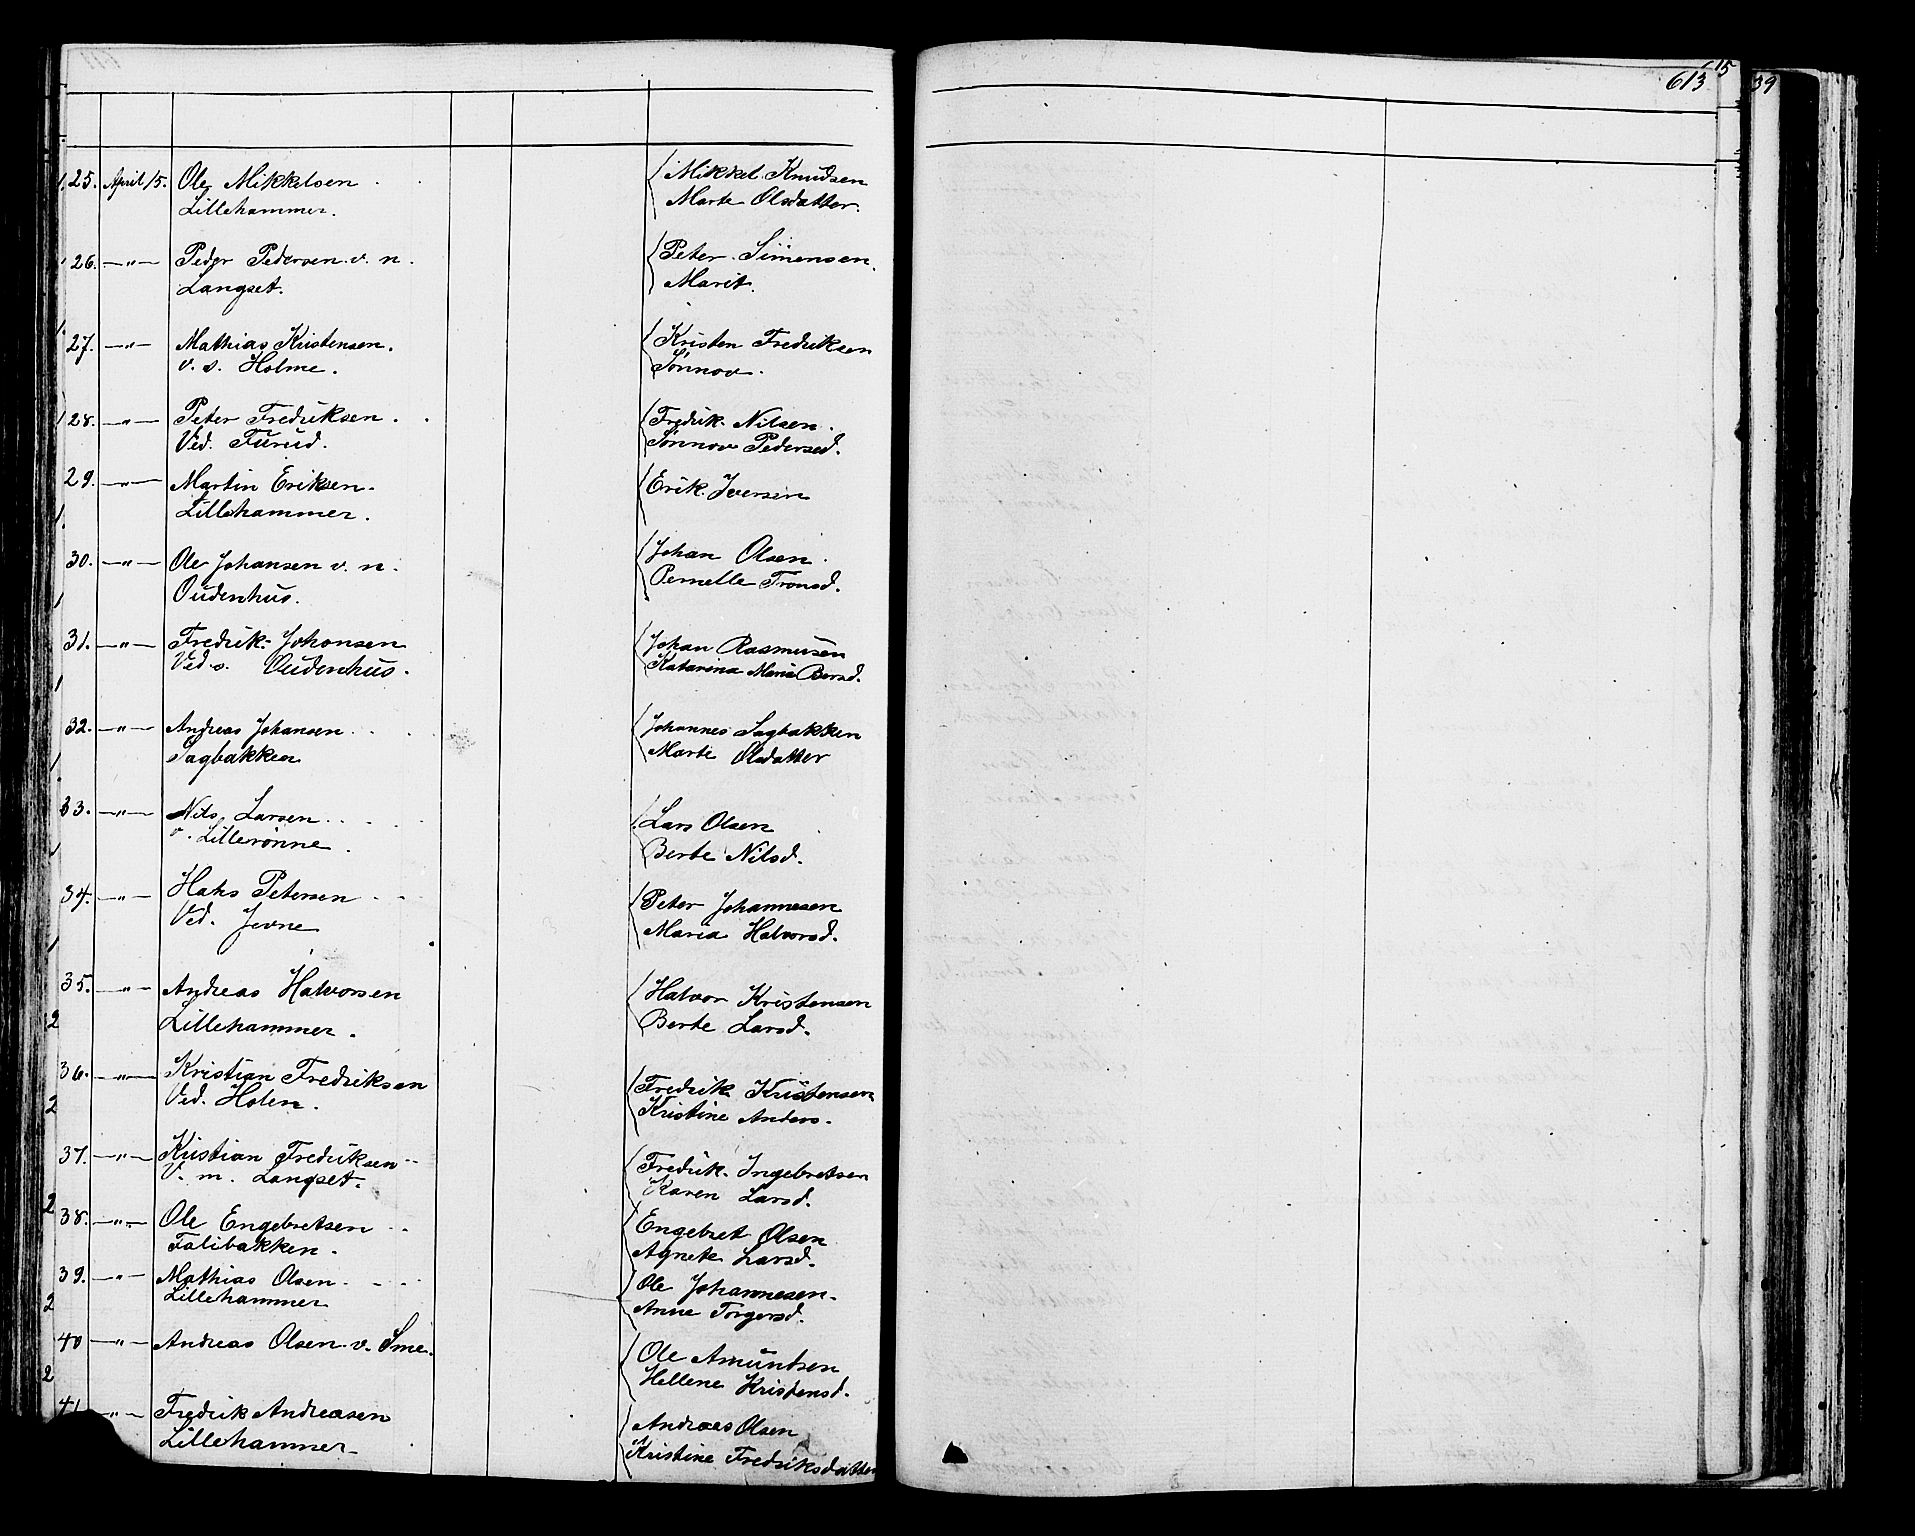 613
615
39
25. April 15. Ole Mikkelsen Mikkel Knudsen
Lillehammer. Marte Olsdatter.
26. —"— Peder Pedersen v. n. Peter Simensen.
Langset. Marit.
27. —"— Mathias Kristensen. Kristen Fredriksen
v. s. Holme. Sønnov.
28. —"— Peter Fredriksen. Fredrik Nilsen.
Ved. Furud. Sønnov Pedersd.
29. —"— Martin Eriksen. Erik Iversen
Lillehammer.
30. —"— Ole Johansen v. n. Johan Olsen.
Oudenhus. Pernelle Tronsd.
31. —"— Fredrik Johansen Johan Rasmusen
Ved s. Oudenhus. Katarina Maria Bersd.
32. —"— Andreas Johansen Johannes Sagbakken
Sagbakken Marte Olsdatter
33. —"— Nils Larsen Lars Olsen
v. Lillerønne. Berte Nilsd.
34. —"— Hans Petersen Peter Johannesen
Ved. Jevne Maria Halvorsd.
35. —"— Andreas Halvorsen Halvor Kristensen
Lillehammer. Berte Larsd.
36. —"— Kristian Fredriksen Fredrik Kristensen
Ved. Holen. Kristine Anders.
37. —"— Kristian Fredriksen Fredrik Ingebretsen
V. m. Langset. Karen Larsd.
38. —"— Ole Engebretsen Engebret Olsen
Falibakken. Agnete Larsd.
39. —"— Mathias Olsen Ole Johannesen
Lillehammer Anne Torgersd.
40 —"— Andreas Olsen v. Sme. Ole Amundsen
Hellene Kristensd.
41 —"— Fredrik Andreasen Andreas Olsen
Lillehammer Kristine Fredriksdatter